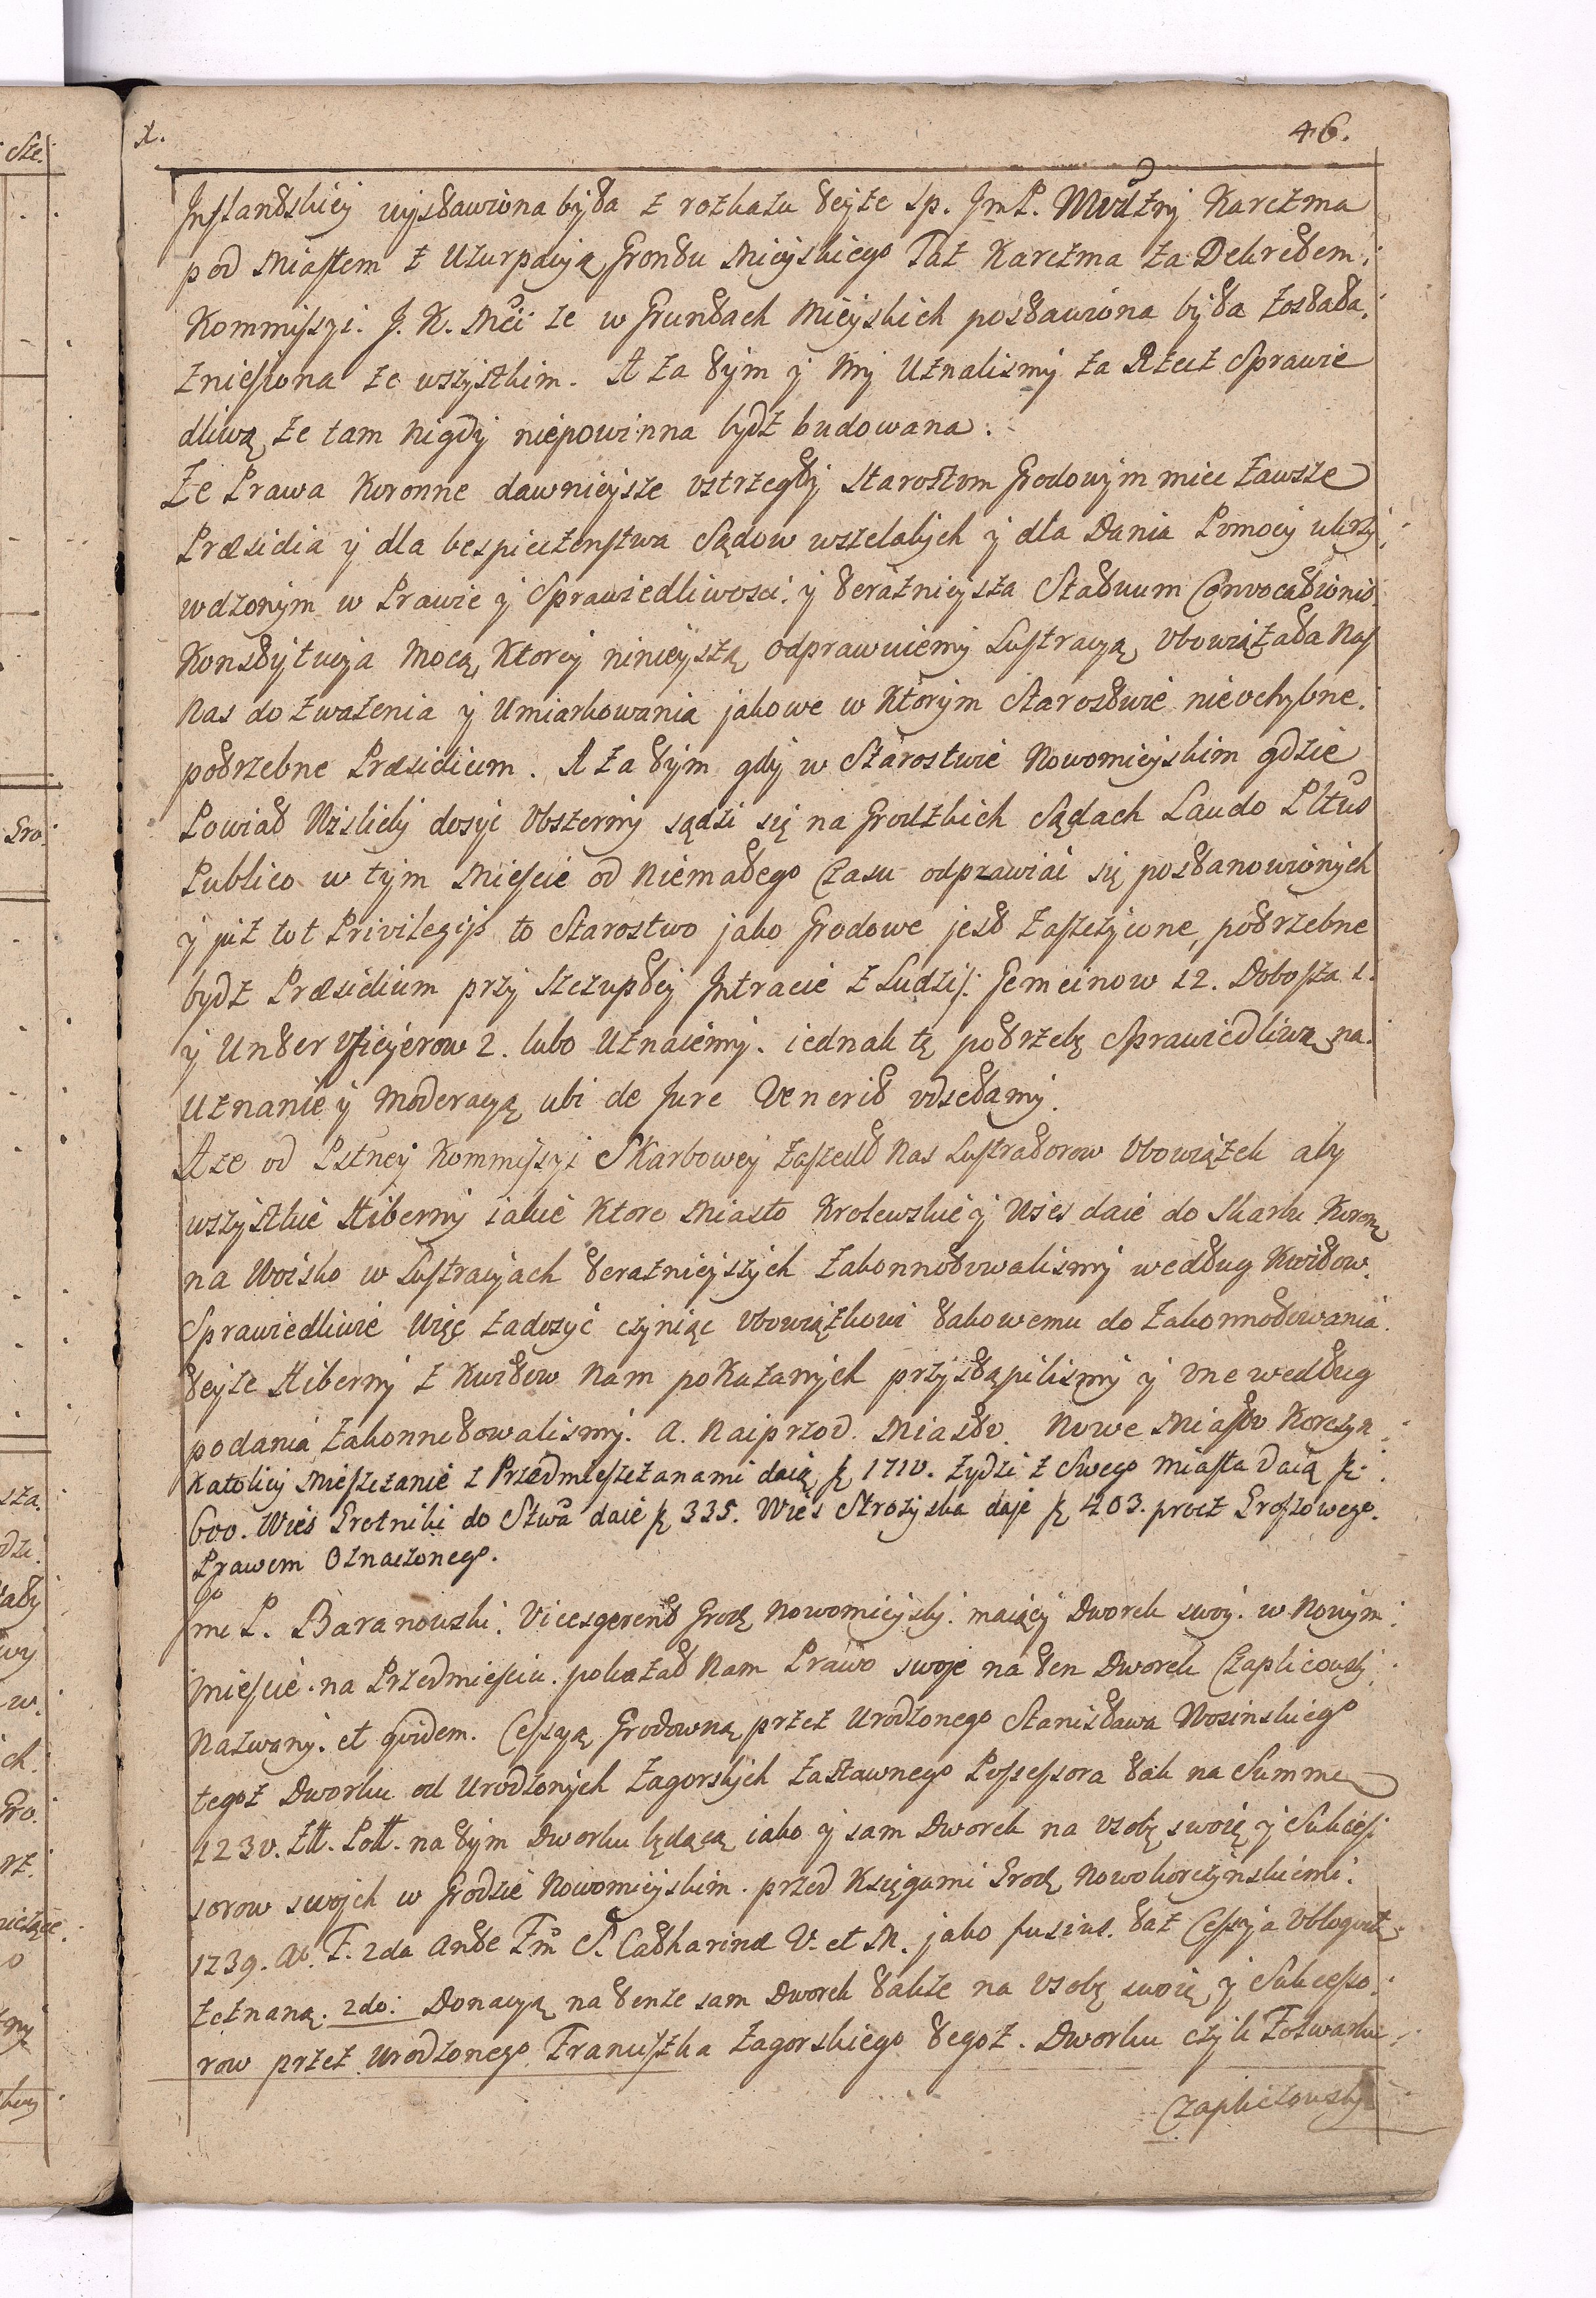 x. 46.
Inflandskiey wystawiona była z rozkazu teyże sp. Jm P. Wdzny Karczma
pod Miastem z Uzurpacyą Grondu Mieyskiego Taż Karczma za Dekretem
Kommissyi J. K. Mći że w Gruntach Mieyskich postawiona była została
zniesiona ze wszystkim. A za tym y My Uznalismy za Rzecz Sprawie
dliwą że tam nigdy niepowinna bydź budowana.
Że Prawa Koronne dawnieysze ostrzegły Starostom Grodowym miec zawsze
Præsidia y dla bespieczenstwa Sądow wszelakich y dla Dania Pomocy ukrzy
wdzonym w Prawie y Sprawiedliwosci y teraznieysza Statuum Convocationis
Konstytucya Mocą Ktorey ninieyszą odprawuiemy Lustracyą, obowiązała Nas
Nas do zważenia y Umiarkowania jakowe w Ktorym Starostwie nieochybne
potrzebne Præsidium. A za tym gdy w Starostwie Nowomieyskim gdzie
Powiat Wislicki dosyc obszerny sądzi się na Grodzkich Sądach Laudo Pltus
Publico w tym Miescie od Niemałego Czasu odprawiac się postanowionych
y już tot Privilegijs to Starostwo jako Grodowe jest zaszczycone, potrzebne
bydź Præsidium przy szczupłey Intracie z Ludzi Gemeinow 12. Dobosza 1.
y Unter Oficyerow 2. lubo Uznaiemy iednak tę potrzebę Sprawiedliwą na
Uznanie y Moderacyą ubi de Jure Venerit odsełamy.
A że od Pstney Kommissyi Skarbowey zaszedł Nas Lustratorow obowiązek aby
wszystkie Hiberny iakie Ktore Miasto Krolewskie y Wies daie do Skarbu Koronę
na Woisko w Lustracyach teraznieyszych zakonnotowalismy według Kwitow
Sprawiedliwie Więc zadosyć czyniąc obowiązkowi takowemu do zakonnotowania
teyże Hiberny z Kwitow Nam pokazanych przystąpilismy y one według
podania zakonnotowalismy. A Naiprzod Miasto Nowe Miasto Korczyn
Katolicy Mieszczanie z Przedmieszczanami daią fl 1710. Żydzi z Swego Miasta daią fl:
600. Wies Grotniki do Stwa daie fl 335. Wies Strożyska daje fl 403. procz Groszowego
Prawem Oznaczonego.
Jmc P. Baranowski Vicesgerent Grodz Nowomieyski maiący Dworek swoy w Nowym
Miescie na Przedmiesciu pokazał Nam Prawo swoje na ten Dworek Czaplicowski
Nazwany et quidem Cessyą Grodowną przez Urodzonego Stanisława Wosinskiego
tegoż Dworku od Urodzonych Zagorskich Zastawnego Possessora tak na Summe
1230. Złt. Poltt. na tym Dworku będącą iako y sam Dworek na osobę swoię y Sukces
sorow swojch w Grodzie Nowomieyskim przed Księgami Grodz Nowokorczynskiemi
1739. Ao. F. 2da Ante Fm S. Catharinæ V. et M. jako fusius taż Cessya obloquit
zeznaną. 2do: Donacyą na tenże sam Dworek także na osobę swoię y Sukcesso
row przez Urodzonego Franciszka Zagorskiego tegoż Dworku czyli Folwarku
Czapliczowski